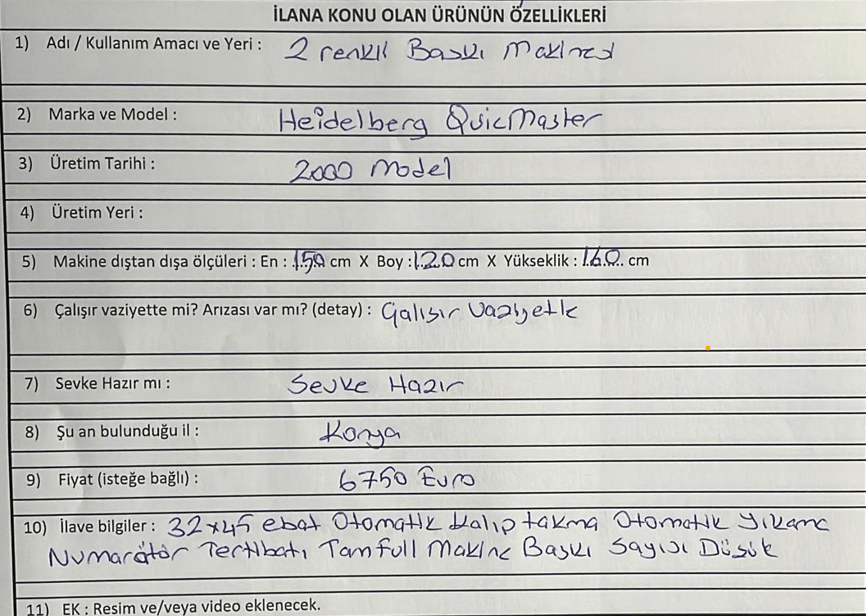 İLANA KONU OLAN ÜRÜNÜN ÖZELLİKLERİ
1) Adı / Kullanım Amacı ve Yeri : 2 renkli Baskı Makinesi
2) Marka ve Model : Heidelberg QuicMaster
3) Üretim Tarihi : 2000 model
4) Üretim Yeri :
5) Makine dıştan dışa ölçüleri : En : 150 cm X Boy : 120 cm X Yükseklik : 160 cm
6) Çalışır vaziyette mi? Arızası var mı? (detay) : Çalışır vaziyette
7) Sevke Hazır mı : Sevke Hazır
8) Şu an bulunduğu il : Konya
9) Fiyat (isteğe bağlı) : 6750 Euro
10) İlave bilgiler : 32x45 ebat Otomatik kalıp takma Otomatik yıkama
Numaratör Tertibatı Tam full Makine Baskı Sayısı Düşük
11) EK : Resim ve/veya video eklenecek.